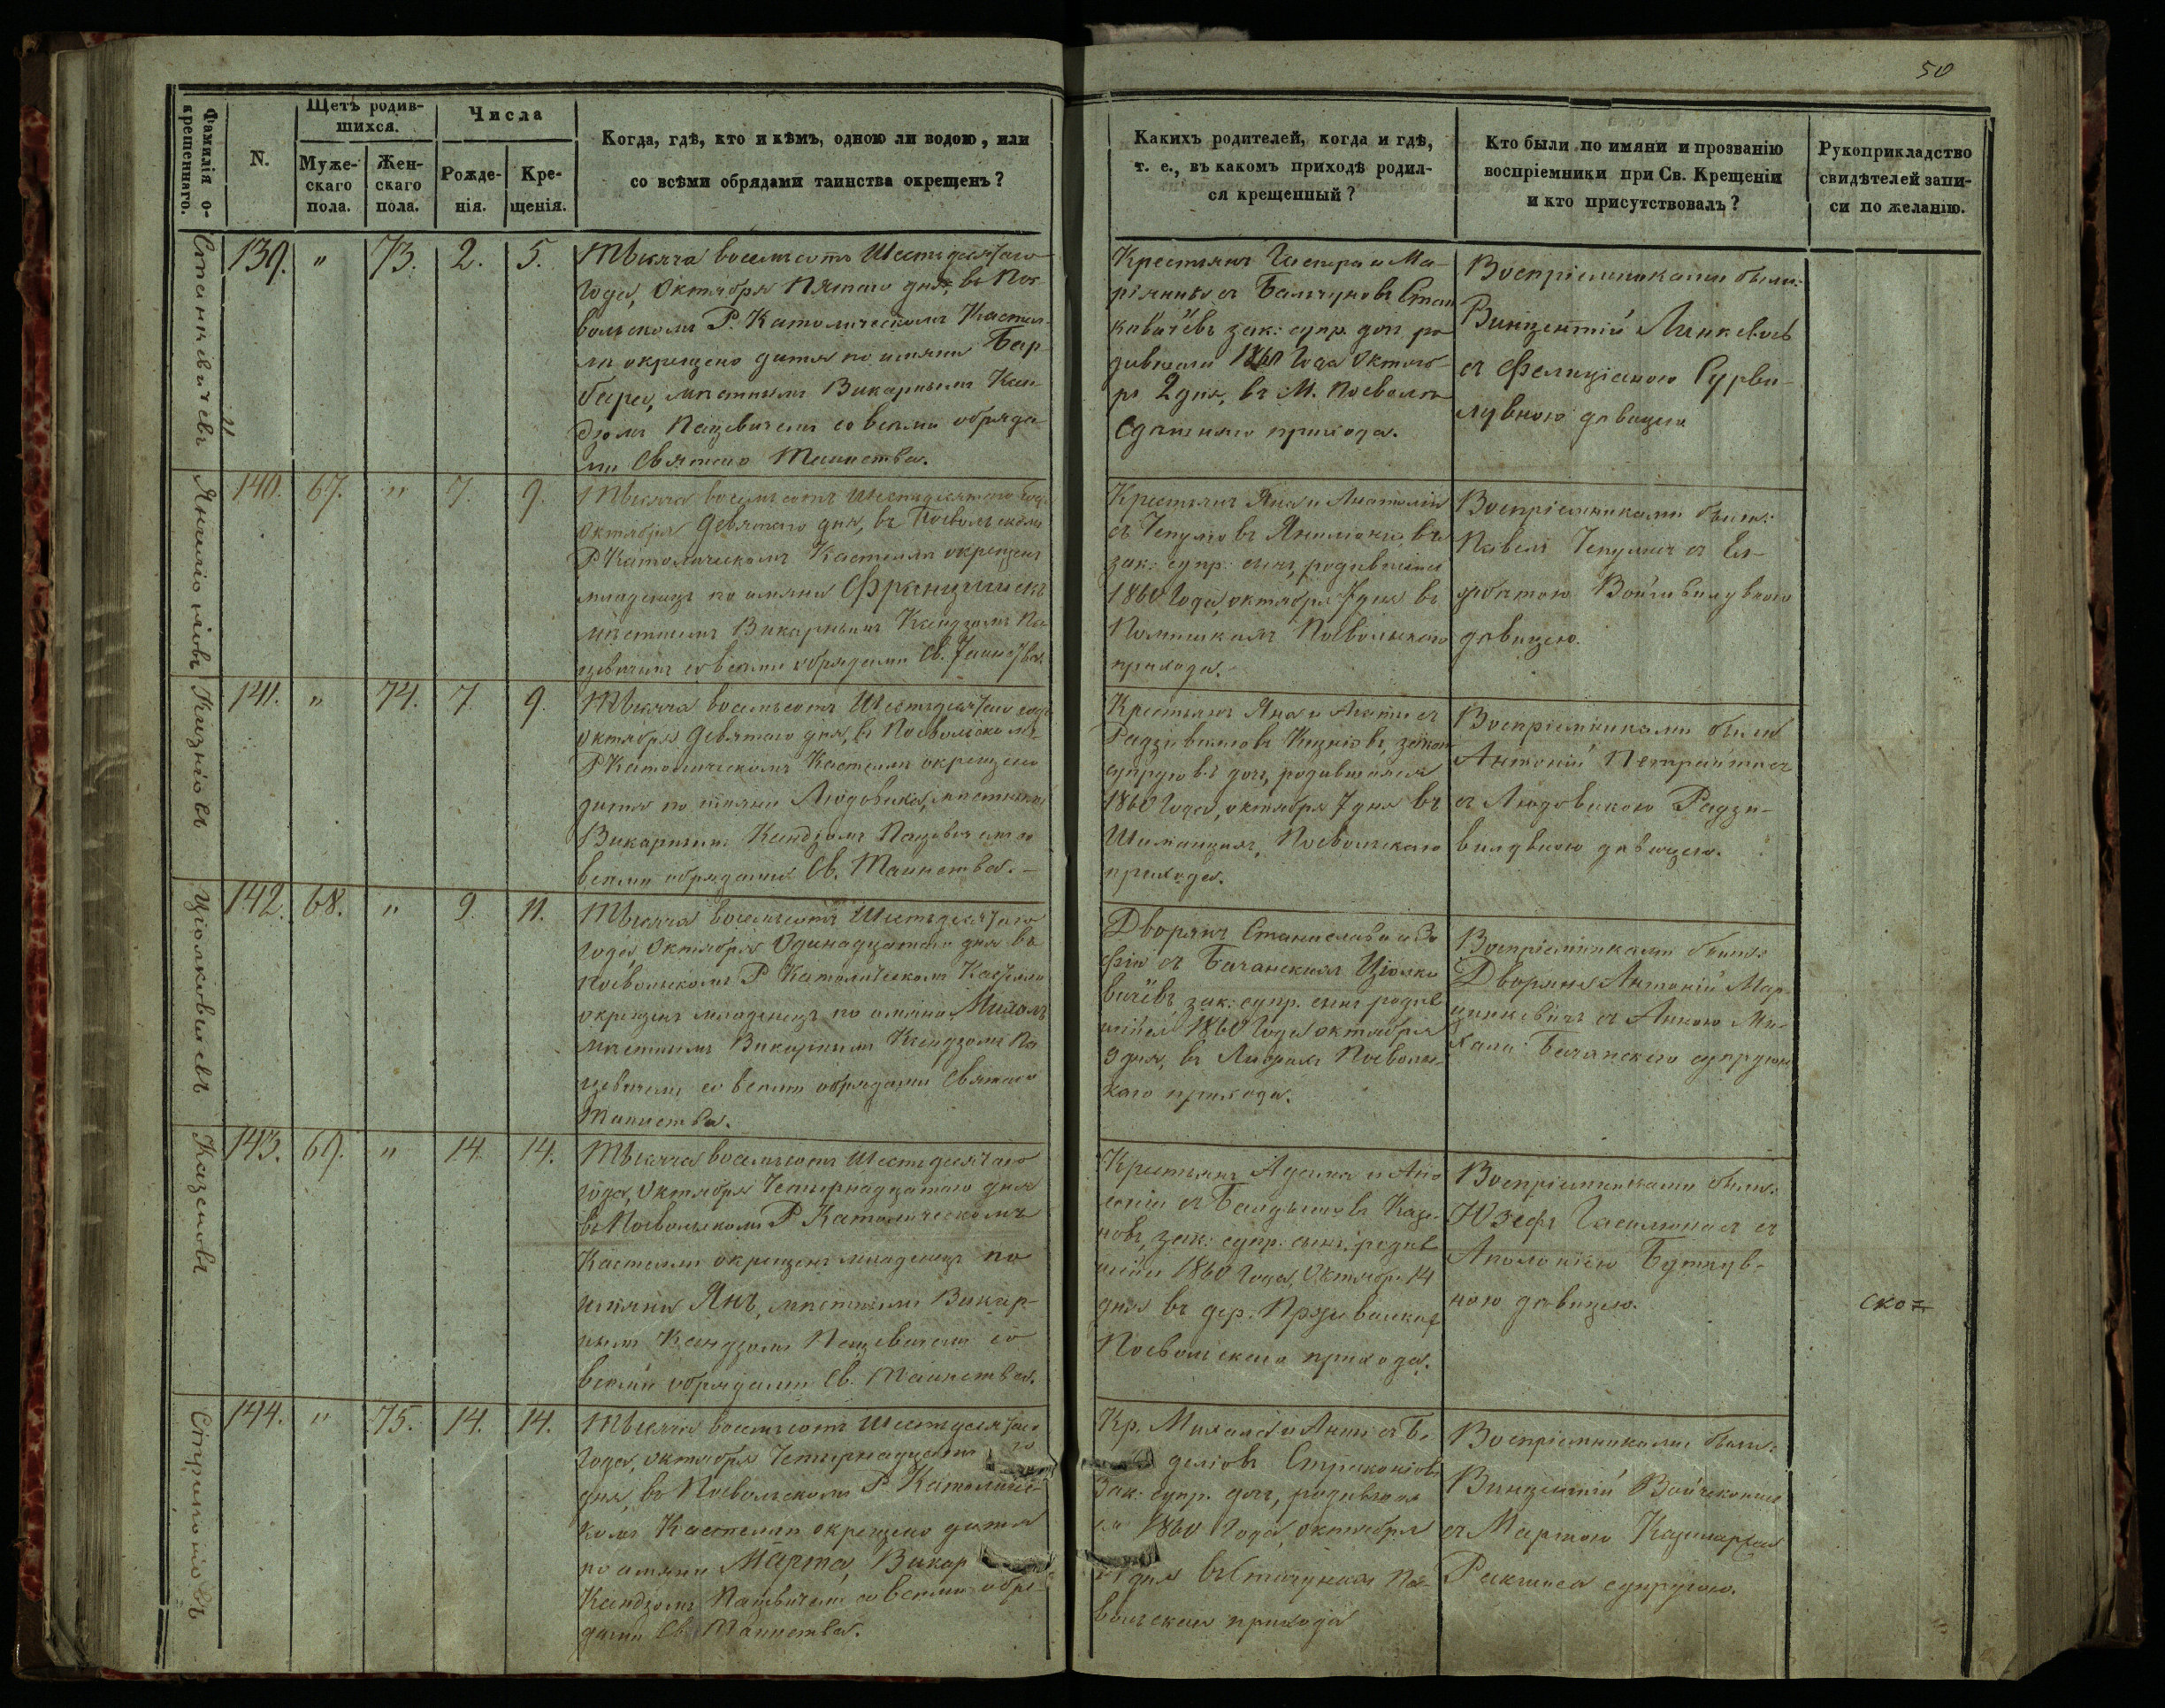 50
Фамилія о-
крещеннаго.
N.
Щетъ родив-
шихся.
Муже-
скаго
пола.
Жен-
скаго
пола.
Числа
Рожде-
нія.
Кре-
щенія.
Когда, гдѣ, кто и кѣмъ, одною ли водою, или
со всѣми обрядами таинства окрещенъ?
Какихъ родителей, когда и гдѣ,
т. е., въ какомъ приходѣ родил-
ся крещенный?
Кто были по имяни и прозванію
воспріемники при Св. Крещеніи
и кто присутствовалъ?
Рукоприкладство
свидѣтелей запи-
си по желанію.
Станкевичевъ
139. " 73. 2. 5.
Тысяча восемьсотъ Шестьдесятаго
Года, Октября Пятаго дня, въ Пос-
вольскомъ Р. Католическомъ Костел-
лѣ окрещено дитя по имяни Бар-
бара, мѣстнымъ Викарнымъ Ксен-
дзомъ Пацевичемъ со всѣми обряда-
ми Святаго Таинства.
Крестьянъ Гаспра и Ма-
ріянны съ Бальчуновъ Стан
кевичёвъ зак: супр. дочь ро
дившаяся 1860 Года Октяб-
ря 2 дня, въ М. Посволѣ
Сдѣшняго прихода.
Воспріемниками были:
Винцентій Линкевичъ
съ Фелиціяною Сурви-
лувною дѣвицею
Янилионовъ
140. 67. " 7. 9.
Тысяча восемьсотъ Шестьдесятаго Года
Октября Девятаго дня, въ Посвольскомъ
Р Католическомъ Костеллѣ окрещенъ
младенецъ по имяни Францишекъ
мѣстнымъ Викарнымъ Ксендзомъ Па
цевичемъ со всѣми обрядами Св. Таинства.
Крестьянъ Яна и Анатоліи
съ Чепулѣовъ
зак: супр: сынъ, родившійся
1860 Года, октября 7 дня въ
Посвольскаго
прихода.
Воспріемниками были:
Павелъ Чепулисъ съ Ел-
дѣвицею.
Кизніовъ
141. " 74. 7. 9.
Тысяча восемьсотъ Шестьдесятаго года
Октября Девятаго дня, въ Посвольскомъ
Р Католическомъ Костеллѣ окрещено
дитя по имяни Людовика, мѣстнымъ
Викарнымъ Ксендзомъ Пацевичемъ со
всѣми обрядами Св. Таинства. –
Крестьянъ Яна и Агаты съ
Радзивиловъ Кизніовъ, закон
супруговъ дочь, родившаяся
1860 Года, октября 7 дня въ
Шиманцахъ, Посвольскаго
прихода.
Воспріемниками были
Антоній Петрайтисъ
съ Людовикою Радзи-
вилувною дѣвицею.
Цюлковичевъ
142. 68. " 9. 11.
Тысяча восемьсотъ Шестьдесятаго
Года Октября Одинадцатаго дня въ
Посвольскомъ Р Католическомъ Костеллѣ
окрещенъ младенецъ по имяни Михалъ
мѣстнымъ Викарнымъ Ксендзомъ Па
цевичемъ со всѣми обрядами Святаго
Таинства.
Дворянъ Станислава и Зо
фіи съ Бачанскихъ Ціолко
вичёвъ зак: супр. сынъ родив
шійся 1860 Года октября
9 дня, въ Посволь-
скаго прихода.
Воспріемниками были:
Дворяне Антоній Мар-
цинкевичъ съ Анною Ми-
хала Бачанскаго супругою
Казеновъ
143. 69. " 14. 14.
Тысяча восемьсотъ Шестьдесятаго
года, Октября Четырнадцатаго дня
въ Посвольскомъ Р Католическомъ
Костеллѣ окрещенъ младенецъ по
имяни Янъ, мѣстнымъ Викар-
нымъ Ксендзомъ Пацевичемъ со
всѣми обрядами Св. Таинства.
Крестьянъ Адама и
съ Казе-
новъ, зак: супр: сынъ, родив
шійся 1860 Года, Октября 14
дня въ дер.
Посвольскаго прихода.
Воспріемниками были:
Юзефъ съ
Аполоніею Буткув-
ною дѣвицею.
ско=
Стриконіовъ
144. " 75. 14. 14.
Тысяча восемьсотъ Шестьдесятаго
Года, октября Четырнадцатаго
дня, въ Посвольскомъ Р Католичес-
комъ Костеллѣ окрещено дитя
по имяни Марта, Викар
Ксендзомъ Пацевичемъ со всѣми обря-
дами Св Таинства.
Кр. Михала и Анны съ
зак: супр. дочь, родившая
ся 1860 Года, октября
дня въ Пос-
вольскаго прихода
Воспріемниками были:
Винцентій
съ Мартою
супругою.